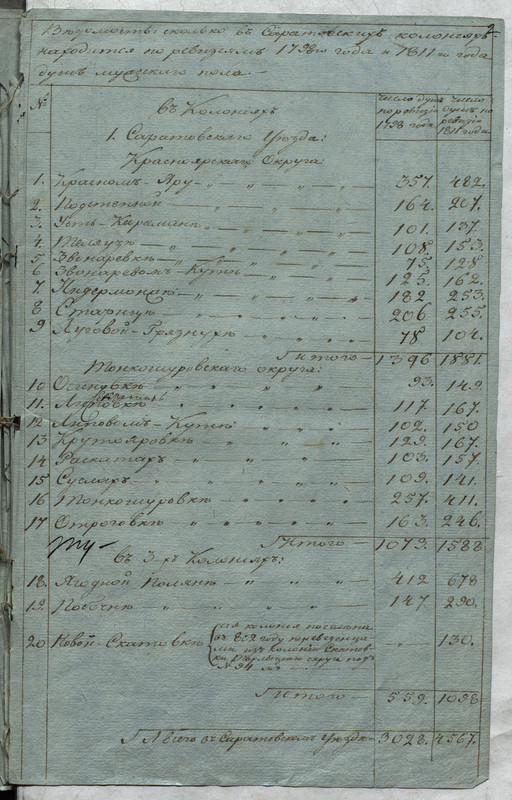 2
Ведомость сколько въ Саратовскихъ колонiяхъ
находится по ревизiямъ 1798го года и 1811го года
душъ мужескаго пола.
№ Въ Колонiяхъ Число душъ по ревизiи 1798 года. Число душъ по ревизiи 1811 года.
1. Саратовскаго Уезда:
Красноярскаго Округа
1. Красномъ-Яру 357. 482.
2. Подстепной 164. 207.
3. Усть-Караманъ 101. 137.
4. Телаузъ 108. 153.
5 Звонаревкъ 75. 128
6 Звонаревомъ-Кутъ 125. 162.
7. Ендерманiю 182 253.
8 Старицъ 206 255.
9 Луговой-Грязнухъ 78 104.
Итого 1396 1881.
Тонкошуровскаго округа:
10 Осиновкъ 93. 149.
11. Липовкъ 117. 167.
12 Липовомъ-Кутъ 102. 150
13 Крутояровкъ 129. 167.
14 Раскатахъ 103. 157.
15 Суслахъ 109. 141.
16 Тонкошуровкъ 257. 411.
17 Отроговкъ 163. 246.
Итого 1073. 1588
въ 3-хъ Колонiяхъ:
18. Ягодной Полянъ 412 678
19 Побочно 147. 290.
20 Новой-Скатовкъ сiя колонiя поселена въ 802 году переведенцами изъ колонiи Скатовки округа подъ № 94 130.
Итого 559. 1098
А Всего въ Саратовскомъ Уезде 3028. 4567.